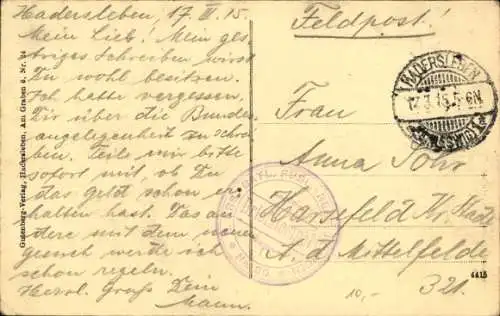 Hadersleben, 17. III. 15.
Mein Lieb! Mein ges-
triges Schreiben wirst
Du wohl besitzen.
Ich hatte vergessen,
Dir über die Bundes-
angelegenheit zu schrei-
ben. Teile mir bitte
sofort mit, ob Du
das Geld schon er-
halten hast. Das an-
dere mit dem neuen
Gesuch werde ich
schon regeln.
Herzl. Gruß Dein
Mann.
Gutenberg-Verlag, Hadersleben, Am Graben 4, Nr. 24
Feldpost!
HADERSLEBEN
17.3.15.5-6N
(SCHLESWIG)
Frau
Anna Sohr
Harsefeld Kr. Stade
A. d. Mittelfelde
321.
10,-
4415